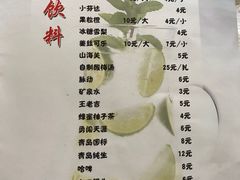 饮料
小芬达 4元
果粒橙 10元/大 4元/小
冰糖雪梨 4元
姜丝可乐 10元/大 7元/小
山海关 5元
自制酸梅汤 25元/扎
脉动 6元
矿泉水 3元
王老吉 6元
蜂蜜柚子茶 6元
勇闯天涯 6元
青品国标 8元
青品纯生 12元
哈啤 8元